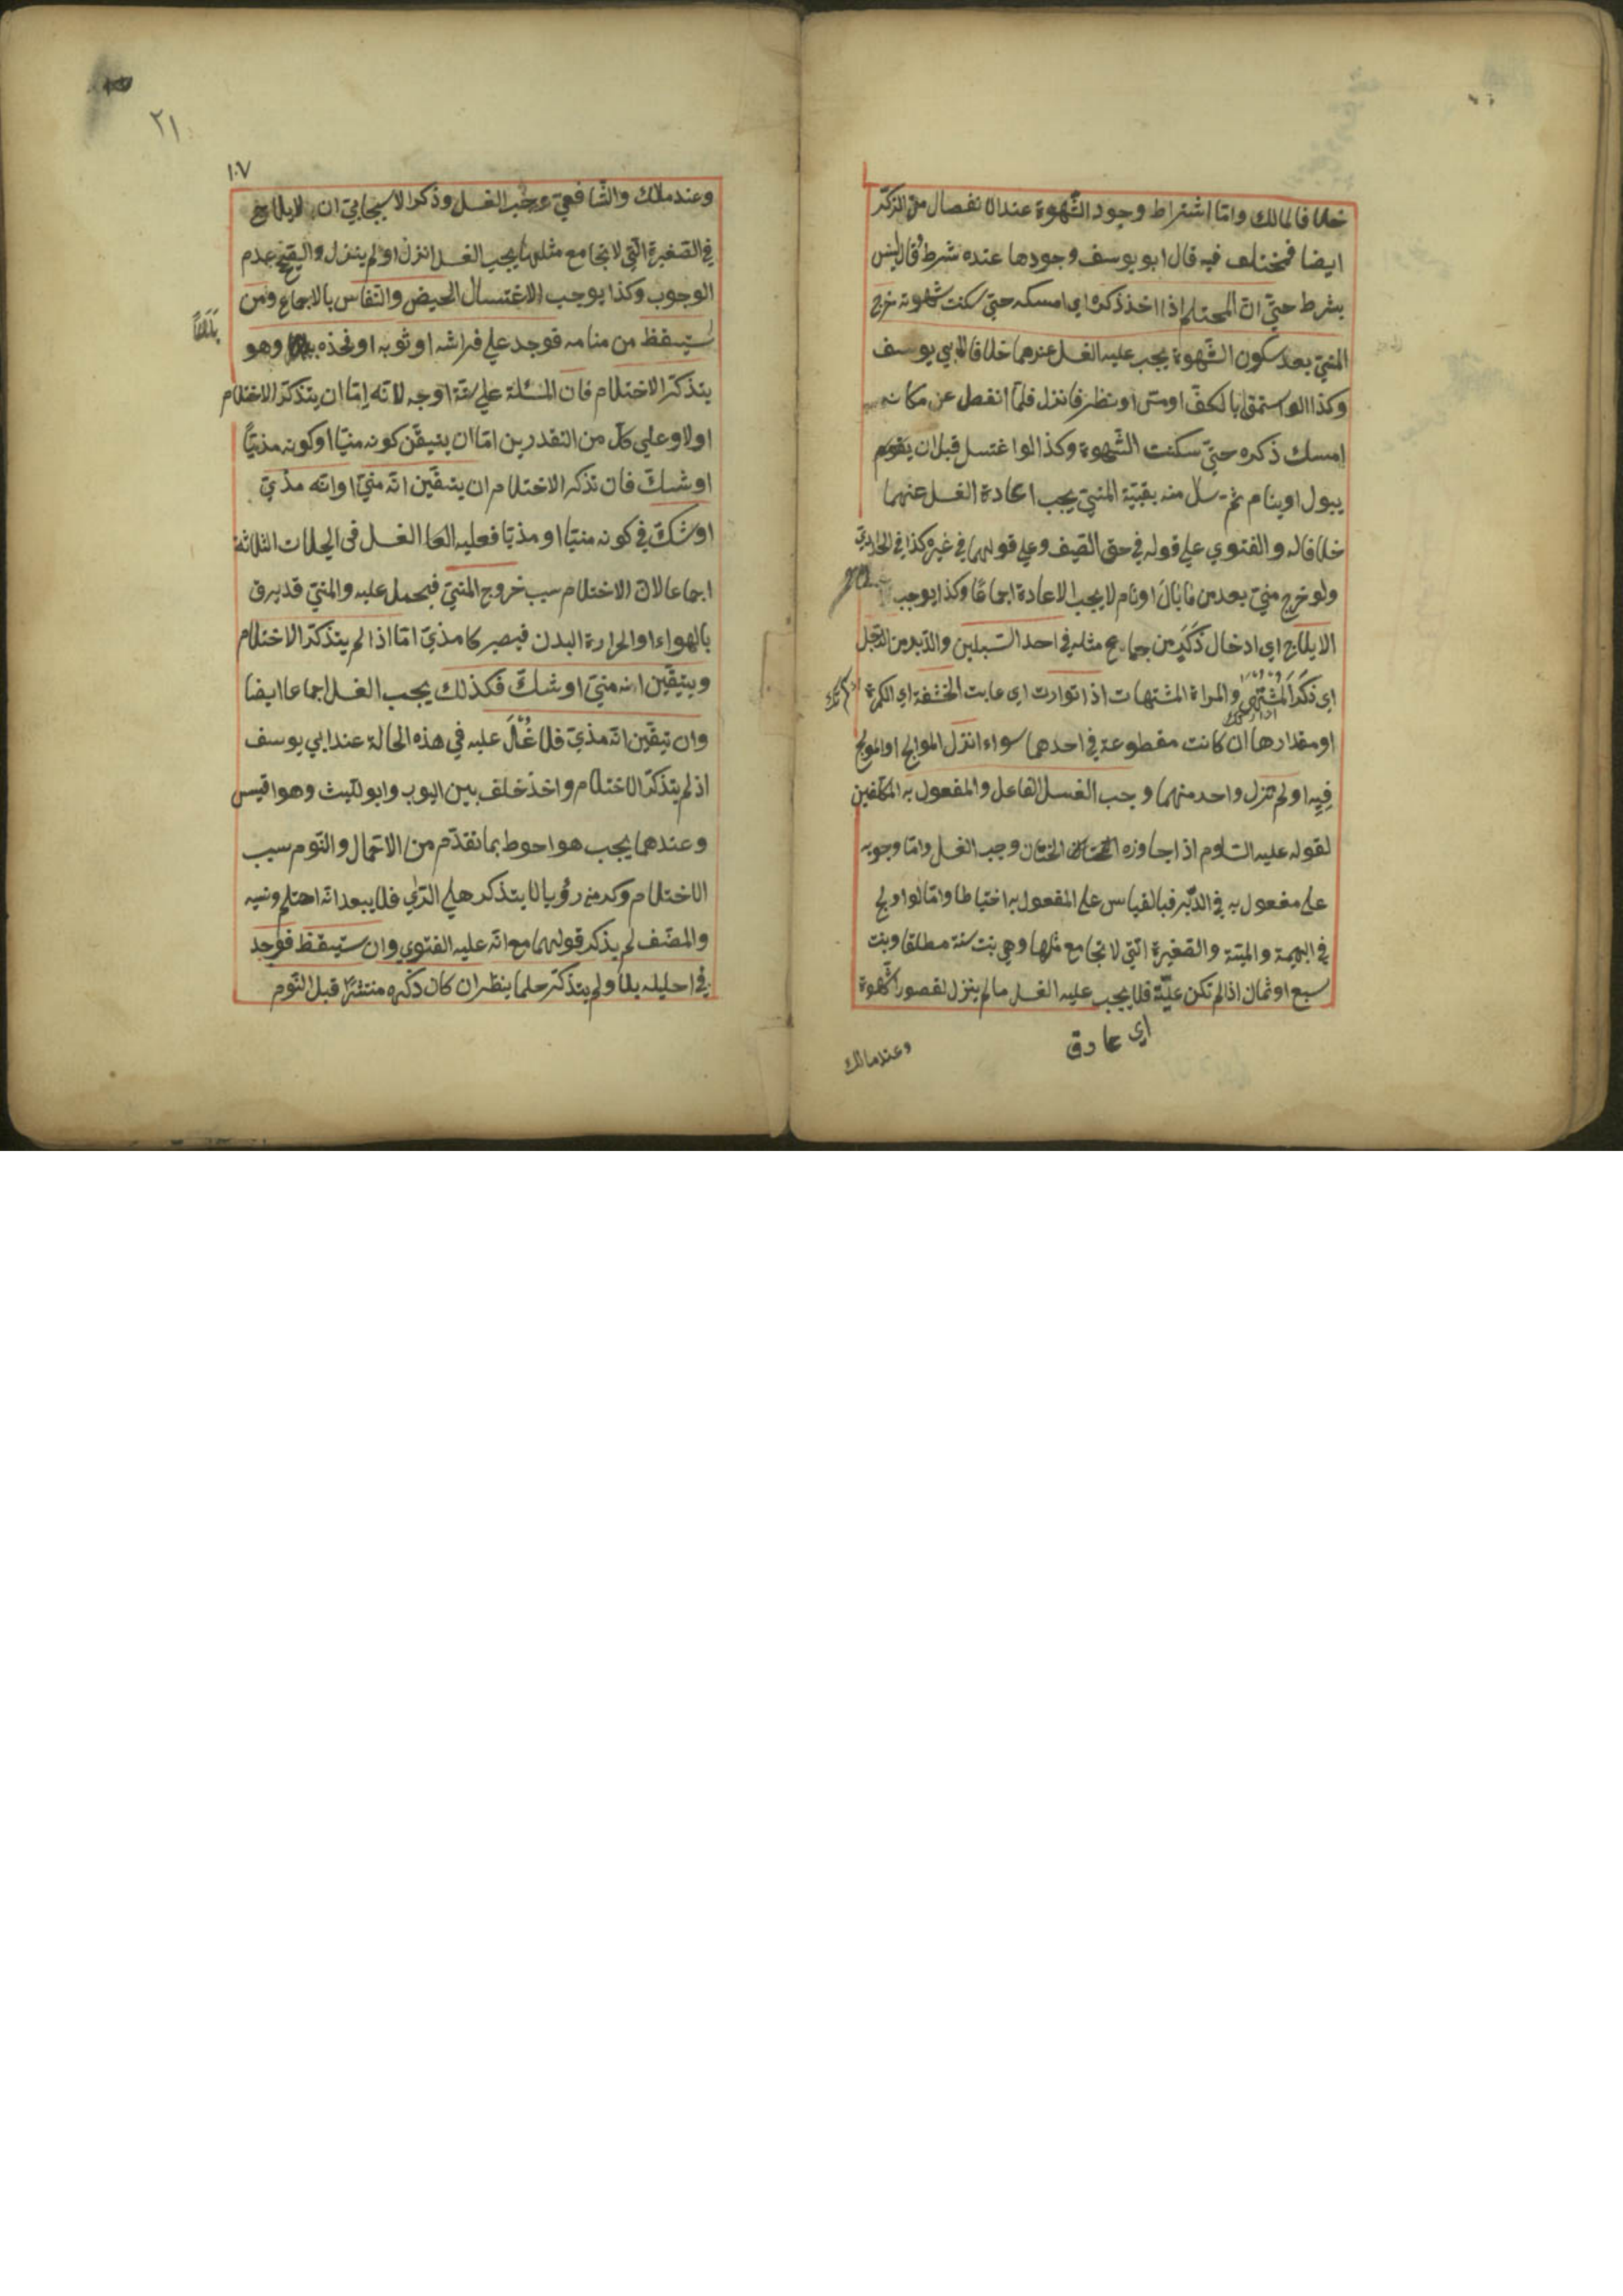 خلافا لمالك وامّا اشتراط وجود الشّهوة عند الانفصال من الذكّر
ايضا فمختلف فيه قال ابو يوسف وجودها عنده شرط وقالا ليس
بشرط حتيّ انّ المحتلم اذا اخذ ذكره اي امسكه حتيّ سكنت شهوته خرج
المنيّ بعد سكون الشّهوة يجب عليه الغسل عندهما خلافا لابي يوسف
وكذا لو استمتي بالكفّ او مسّ او نظر فانزل فلمّا انفصل عن مكانه
امسك ذكره حتيّ سكنت الشّهوة وكذا لوا غتسل قبل ان
يبول او ينام ثمّ سال منه بقيّة المنيّ يجب اعادة الغسل عنهما
خلافا له والفتوي علي قوله في حق الضيف وعلي قولهما في غيره كذا في
ولو خرج منيّ بعد من ما بال او نام لا يجب الاعادة اجماعًا وكذا يوجب
الايلاج اي ادخال ذَكَرٍ من يجامع مثله في احد السّبيلين والدّبر من الرّجل
اي ذكَر المشتهى والمراة المشتهات اذا توارت اي عابت الحشفة اي الكمرة
او مقدارها ان كانت مقطوعة في احدهما سواء انزل المولج او المولج
فِيهِ او لم تنزل واحد منهما وجب الغسل الفاعل والمفعول به المكلّفين
لقوله عليه السّلوم اذا جاوزه الختان الختان وجب الغسل وامّا وجوبه
على مفعول به في الدّبر فبالقياس على المفعول به احتياطا وامّا لو اولج
في البهيمة والميتة والصّغيرة الّتي لا تجامع مثلها وهي بنت ستة مطلقا وبنت
سبع او ثمان اذا لم تكن عليّة فلا يجب عليه الغسل ما لم ينزل لقصور الشّهوة
اي
وعند مالك
٢١
١٠٧
وعند ملاك والشّافعيّ وجب الغسل وذكر الاسبجابيّ ان لايلاج
في الصّغيرة الّتي لا تجامع مثلها يجب الغسل انزل او لم ينزل والصّحيح عدم
الوجوب وكذا يوجب الاغتسال الحيض والنّفاس بالاجماع ومن
بَلَلاً
استيقظ من منامه فوجد علي فراشه او ثوبه او فخذه وهو
يتذكّر الاختلام فان المسئلة علي ستّة اوجه لانّه امّا ان يتذكّر الاختلام
اولا وعلي كلّ من التقدرين امّا ان يتيقّن كونه منيّا او كونه مذيّاً
او شكّ فان تذكر الاختلام ان يتيقّين انّه منيّ او انّه مذيّ
او شكّ في كونه منيّا او مذيّا فعليه الغسل في الحلات الثلاثة
اجماعا لان الاختلام سبب خروج المنيّ فيحمل عليه والمنيّ قد يرق
بالهواء او الحرارة البدن فيصير كا مذيّ امّا اذا لم يتذكّر الاختلام
ويتيقّين انه منيّ او شكّ فكذلك يجب الغسل اجماعا ايضا
وان تيقّين انّه مذيّ فلا غُسْلَ عليه في هذه الحالة عند ابي يوسف
اذ لم يتذكّر الاختلام واخذ خلف بين ايوب وابو ليّث وهو اقيس
وعندهما يجب هو احوط بما تقدّم من الاحتمال والنّوم سبب
الاختلام وكم من رؤيا لا يتذكر فلا يبعد انّه احتلم ونسيه
والمصّنف لم يذكر قولهما مع انّه عليه الفتوي وان ستيقظ فوجد
في احليله بللا ولم يتذكّر حلما ينظر ان كان ذكره منتشرًا قبل النّوم